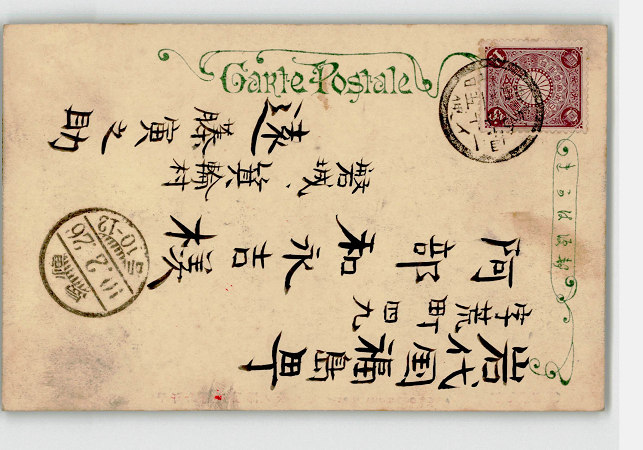 Carte Postale
きかは便郵
岩代国福島町
字荒町四九
阿部和永吉様
磐城、箕輪村
遠藤寅之助
10.2.26